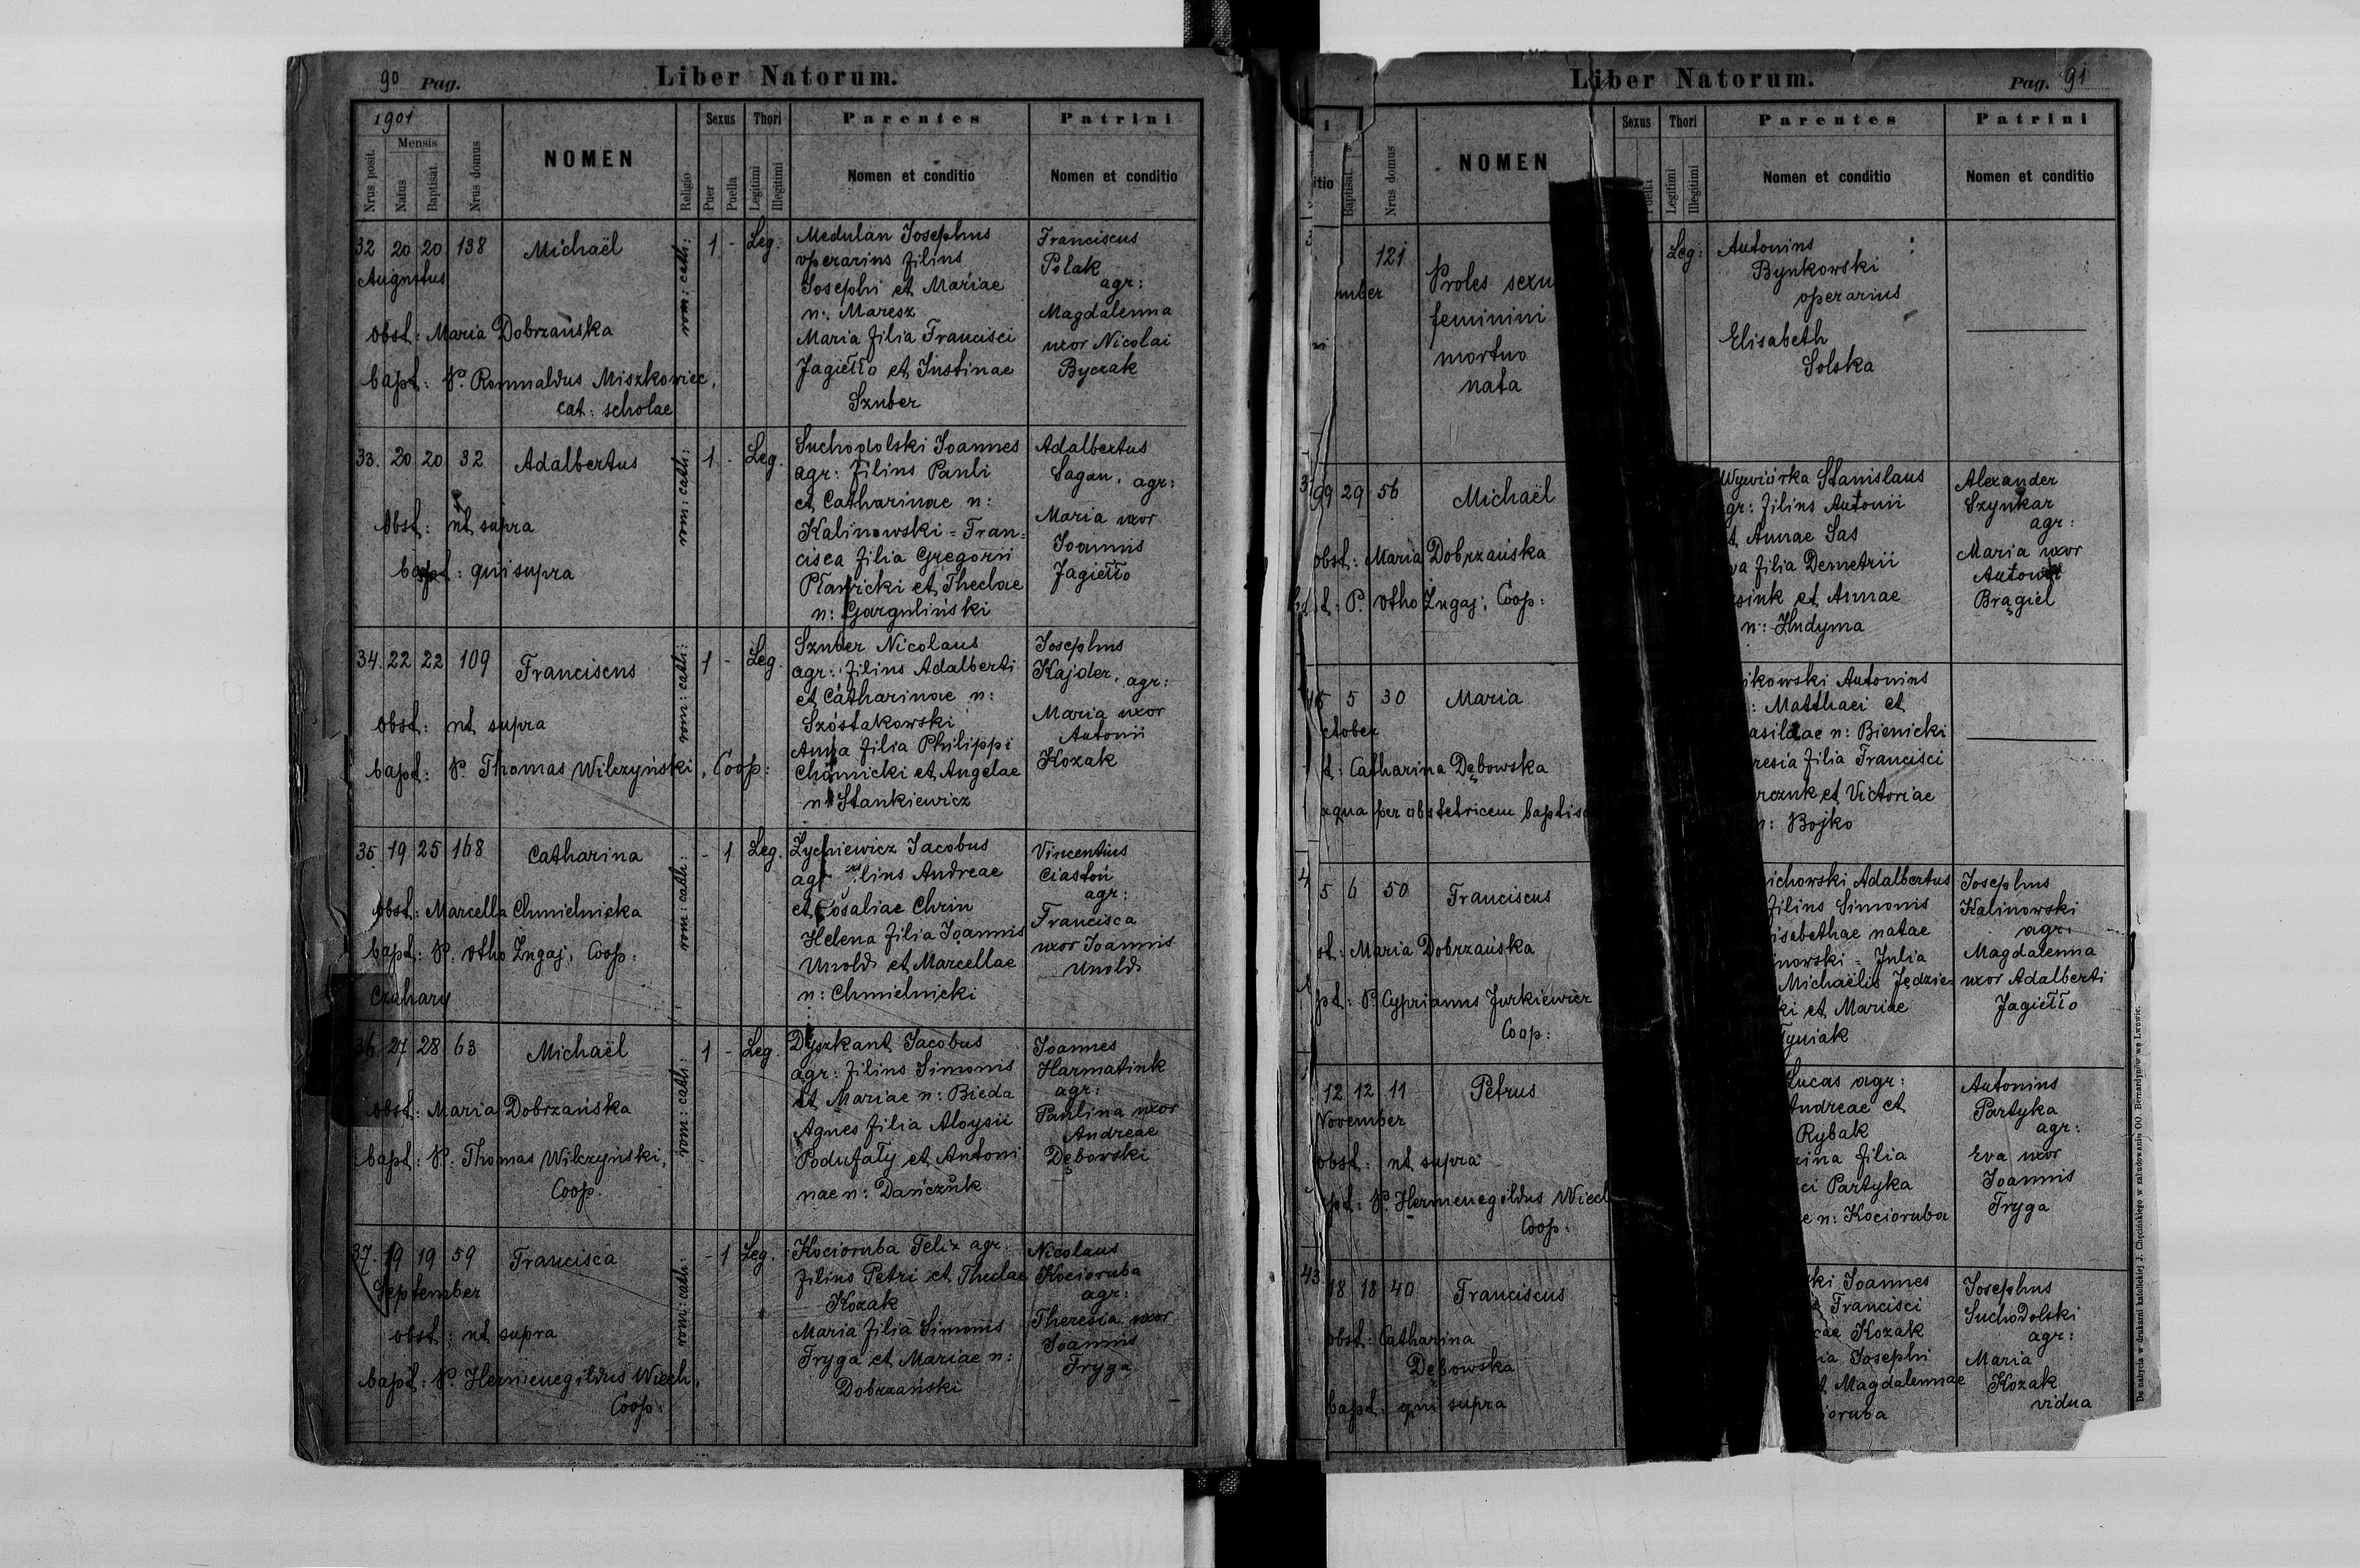 90 Pag. Liber Natorum.
1901
Mensis
Nrus posit.
Natus
Baptisat.
Nrus domus
NOMEN
Religio
Sexus
Puer
Puella
Thori
Legitimi
Illegitimi
Parentes
Nomen et conditio
Patrini
Nomen et conditio
32 20 20 138 Michaël rom: cath: 1 - Leg:
Augustus
obst: Maria Dobrzańska
bapt: P. Romualdus Miszkowiec,
cat: scholae
Medulan Josephus
operarius filius
Josephi et Mariae
n: Maresz
Maria filia Francisci
Jagiełło et Justinae
Szuber
Franciscus
Polak
agr:
Magdalenna
uxor Nicolai
Byczak
33. 20 20 32 Adalbertus rom: cath: 1 - Leg.
Obst: ut supra
bapt: qui supra
Suchodolski Joannes
agr: filius Pauli
et Catharinae n:
Kalinowski = Fran=
cisca filia Gregorii
Pławicki et Theclae
n: Garguliński
Adalbertus
Sagan, agr:
Maria uxor
Joannis
Jagiełło
34. 22 22 109 Franciscus rom: cath: 1 - Leg.
Obst: ut supra
bapt: P. Thomas Wilczyński, Coop:
Szuber Nicolaus
agr: filius Adalberti
et Catharinae n:
Szóstakowski
Anna filia Philippi
Chamicki et Angelae
n: Stankiewicz
Josephus
Kajder, agr:
Maria uxor
Antonii
Kozak
35 19 25 168 Catharina rom: cath: - 1 Leg.
Obst: Marcella Chmielnicka
bapt: P. Otho Zugaj, Coop:
Czuhary
Łychiewicz Jacobus
agr filius Andreae
et Rosaliae Chrin
Helena filia Joannis
Unold et Marcellae
n: Chmielnicki
Vincentius
Ciastoń
agr:
Francisca
uxor Joannis
Unold
36. 27 28 63 Michaël rom: cath: 1 - Leg.
obst: Maria Dobrzańska
bapt: P. Thomas Wilczyński,
Coop.
Dyszkant Jacobus
agr: filius Simonis
et Mariae n: Bieda
Agnes filia Aloysii
Podufały et Antoni
nae n: Dańczuk
Joannes
Harmatiuk
agr:
Paulina uxor
Andreae
Dębowski
37. 19 19 59 Francisca rom: cath: - 1 Leg.
September
obst: ut supra
bapt: P. Hermenegildus Wiech,
Coop:
Kocioruba Felix agr.
filius Petri et Theclae
Kozak
Maria filia Simonis
Fryga et Mariae n:
Dobrzański
Nicolaus
Kocioruba
agr:
Theresia uxor
Joannis
Fryga
Liber Natorum. Pag. 91
Baptisat.
Nrus domus
NOMEN
Sexus
Thori
Legitimi
Illegitimi
Parentes
Nomen et conditio
Patrini
Nomen et conditio
121 Leg:
mber
Proles sexu
feminini
mortuo
nata
Antonius
Bynkowski
operarius
Elisabeth
Solska
29 56 Michaël
obst: Maria Dobrzańska
t: P. Otho Zugaj, Coop:
Wywiórka Stanislaus
gr: filius Antonii
t Annae Sas
va filia Demetrii
siuk et Annae
n: Hudyma
Alexander
Szynkar
agr:
Maria uxor
Antonii
Brągiel
5 5 30 Maria
ctober
t: Catharina Dębowska
aqua per obstetricem baptisa
ikowski Antonius
: Matthaei et
asildae n: Bienicki
resia filia Francisci
rczuk et Victoriae
n: Bojko
5 6 50 Franciscus
st: Maria Dobrzańska
pt: P. Cyprianus Jurkiewicz
Coop:
ichowski Adalbertus
filius Simonis
isabethae natae
inowski = Julia
Michaëlis Jędzie=
ki et Mariae
Tyniak
Josephus
Kalinowski
agr:
Magdalenna
uxor Adalberti
Jagiełło
12 12 11 Petrus
November
obst: ut supra
pt: P. Hermenegildus Wiech
Coop:
Lucas agr:
Andreae et
Rybak
rina filia
ci Partyka
e n: Kocioruba
Antonius
Partyka
agr:
Eva uxor
Joannis
Fryga
43 18 18 40 Franciscus
obst: Catharina
Dębowska
bapt: qui supra
ki Joannes
Francisci
cae Kozak
ia Josephi
t Magdalennae
ioruba
Josephus
Suchodolski
agr:
Maria
Kozak
vidua
Do nabycia w drukarni katolickiej J. Chęcińskiego w zabudowaniu OO. Bernardynów we Lwowie.